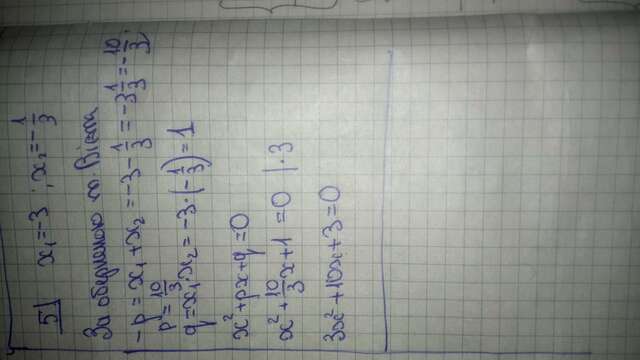 5 x₁=-3 ; x₂=-1/3
За оберненою т. Вієта
-p = x₁+x₂ = -3-1/3 = -3 1/3 = -10/3;
p = 10/3
q = x₁·x₂ = -3·(-1/3) = 1
x²+px+q=0
x²+10/3x+1=0 |·3
3x²+10x+3=0